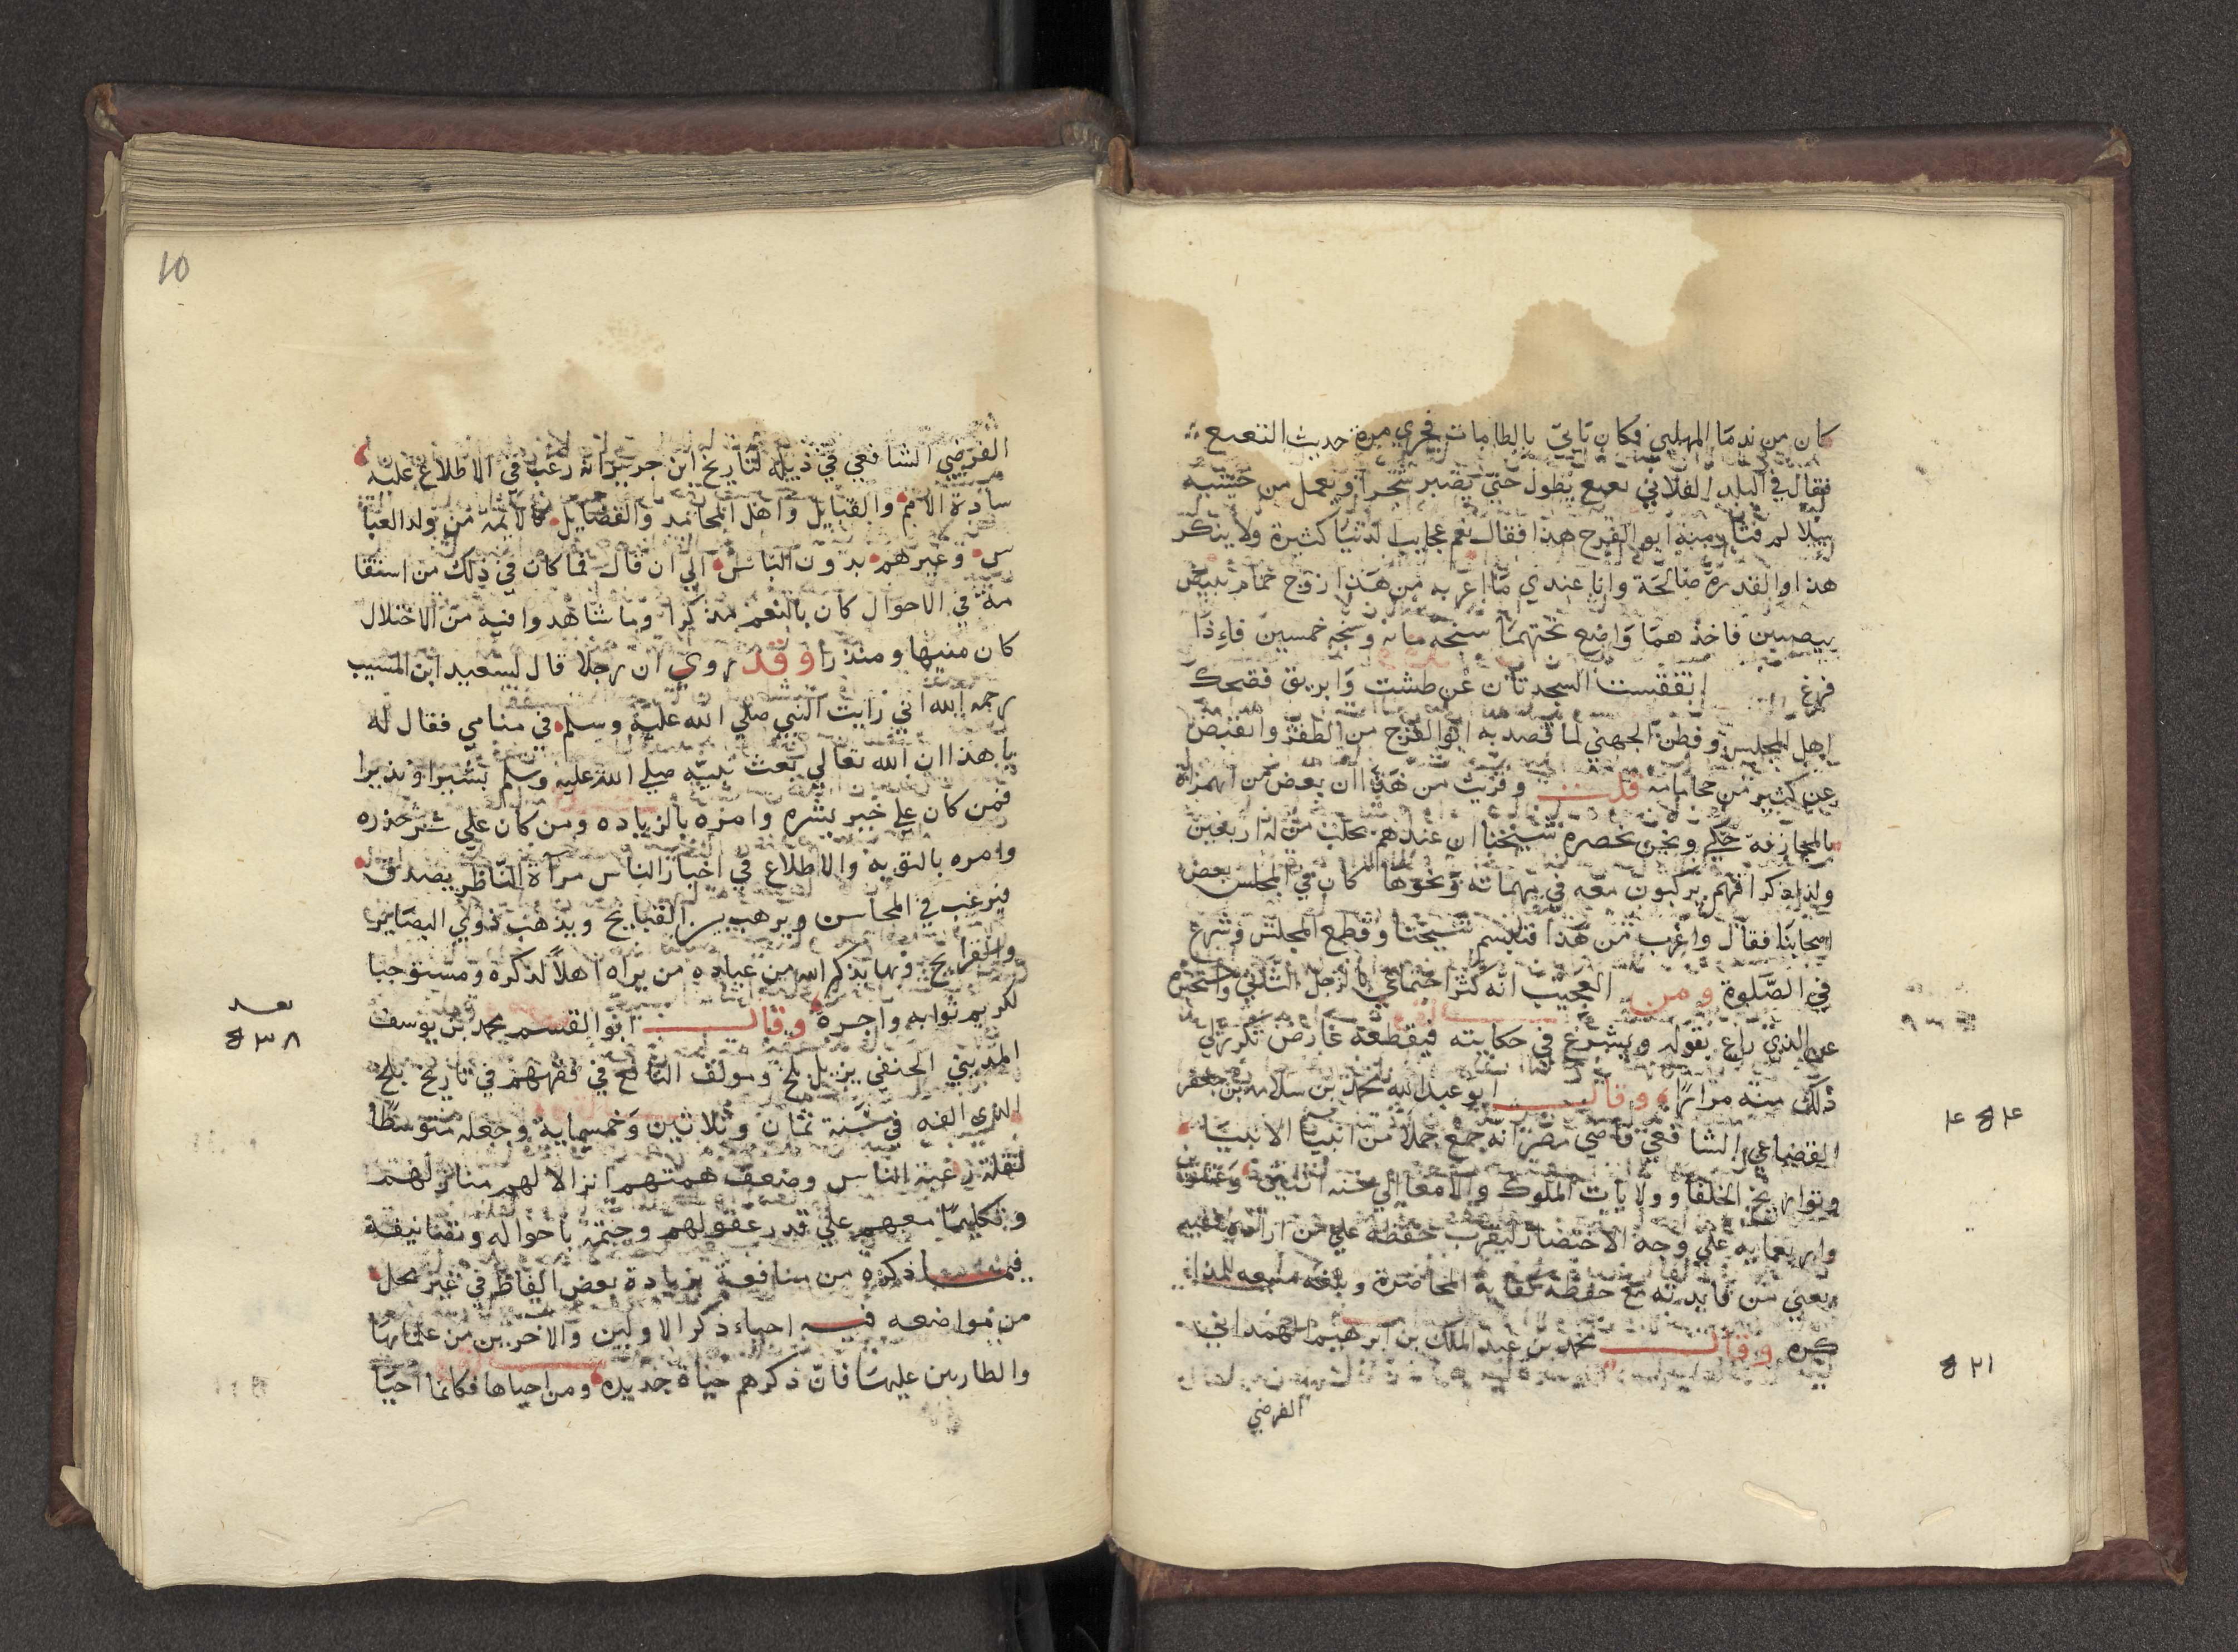 كان من ندما المهلبي فكان ياتي بالطامات فجري مرة حديث النعنع
فقال في البلد الفلاني نعنع يطول حتي يصير شجرا ويعمل من خشبه
سلالم فثار منه ابو الفرج هذا فقال نعم عجايب الدنيا كثيرة ولا ينكر
هذا والقدرة صالحة وانا عندي ما اغرب من هذا زوج حمام يبيض
بيضتين فاخذهما واضع تحتهما سنجه مايه وسنجه خمسين فاءذا
فرغ انفقست السنجدتان عن طشت وابريق فضحك
اهل المجلس وفطن الجهني لما قصد به ابو الفرج من الطنز وانقبض
عن كثير من حكاياته قلت وقريب من هذا ان بعض من اتهمناه
بالمجازفة حكي ونحن بحضرة شيخنا ان عندهم بحلب من له اربعين
ولدا ذكرا فهم يركبون معه في مهماته ونحوها كان في المجلس بعض
اصحابنا فقال واغرب من هذا فتبسم شيخنا وقطع المجلس وشرع
في الصلوة ومن العجيب انه كثر اجتماعي بالرجل الثاني واستخبره
عن الذي راع بقوله ويشرع في حكايته فيقطعه عارض تكرر لي
ذلك منه مرارا وقال ابو عبد الله محمد بن سلامه بن جعفر
القضاعي الشافعي قاضي مصر انه جمع جملا من انبيا الانبيا
وتواريخ الخلفا وولايات الملوك والامرا الي سنه اثنين وعشرين
واربعمايه علي وجه الاختصار ليقرب حفظه علي من اراده فقيه
يعني من فايدته مع حفظه كفاية المحاضرة وبلغه مقنعه للمذا
كره وقال محمد بن عبد الملك بن ابرهيم الهمداني
الفرضي
٤٥٤
٥٢١
10
الفرضي الشافعي في ذيله لتاريخ ابن جرير انه رغب في الاطلاع عليه
سادة الامم والقبايل واهل المحامد والفضايل كالايمه من ولد العبا
س وغيرهم بدون الناس الي ان قال فما كان في ذلك من استقا
مة في الاحوال كان بالنعم مذكرا وما شاهدوا فيه من الاختلال
كان منبها ومنذرا وقد روي ان رجلا قال لسعيد ابن المسيب
رحمه الله اني رايت النبي صلي الله عليه وسلم في منامي فقال له
يا هذا ان الله تعالي بعث نبيه صلي الله عليه وسلم بشيرا ونذيرا
فمن كان علي خير بشره وامره بالزياده ومن كان علي شر حذره
وامره بالتوبه والاطلاع في اخبار الناس مرآة الناظر يصدق
فيرغب في المحاسن ويرهب من القبايح ويذهب ذوي البصاير
والقرايح وبها يذكر الله من عباده من يراه اهلا لذكره ومستوجبا
لكريم ثوابه واجره وقال ابو القسم محمد بن يوسف
المديني الحنفي نزيل بلخ ومولف النافع في فقههم في تاريخ بلخ
الذي الفه في سنة ثمان وثلاثين وخمسماية وجعله متوسطا
لقلة رغبة الناس وضعف همتهم انزالا لهم منازلهم
وتكليما معهم علي قدر عقولهم وختمه باحواله وتصانيفه
فمما ذكره من منافعه بزيادة بعض الفاظ في غير محل
من مواضعه فيه احياء ذكر الاولين والاخرين من علمايها
والطارين عليها فان ذكرهم حياة جديده ومن احياها فكانما احيا
بعد
٥٣٨